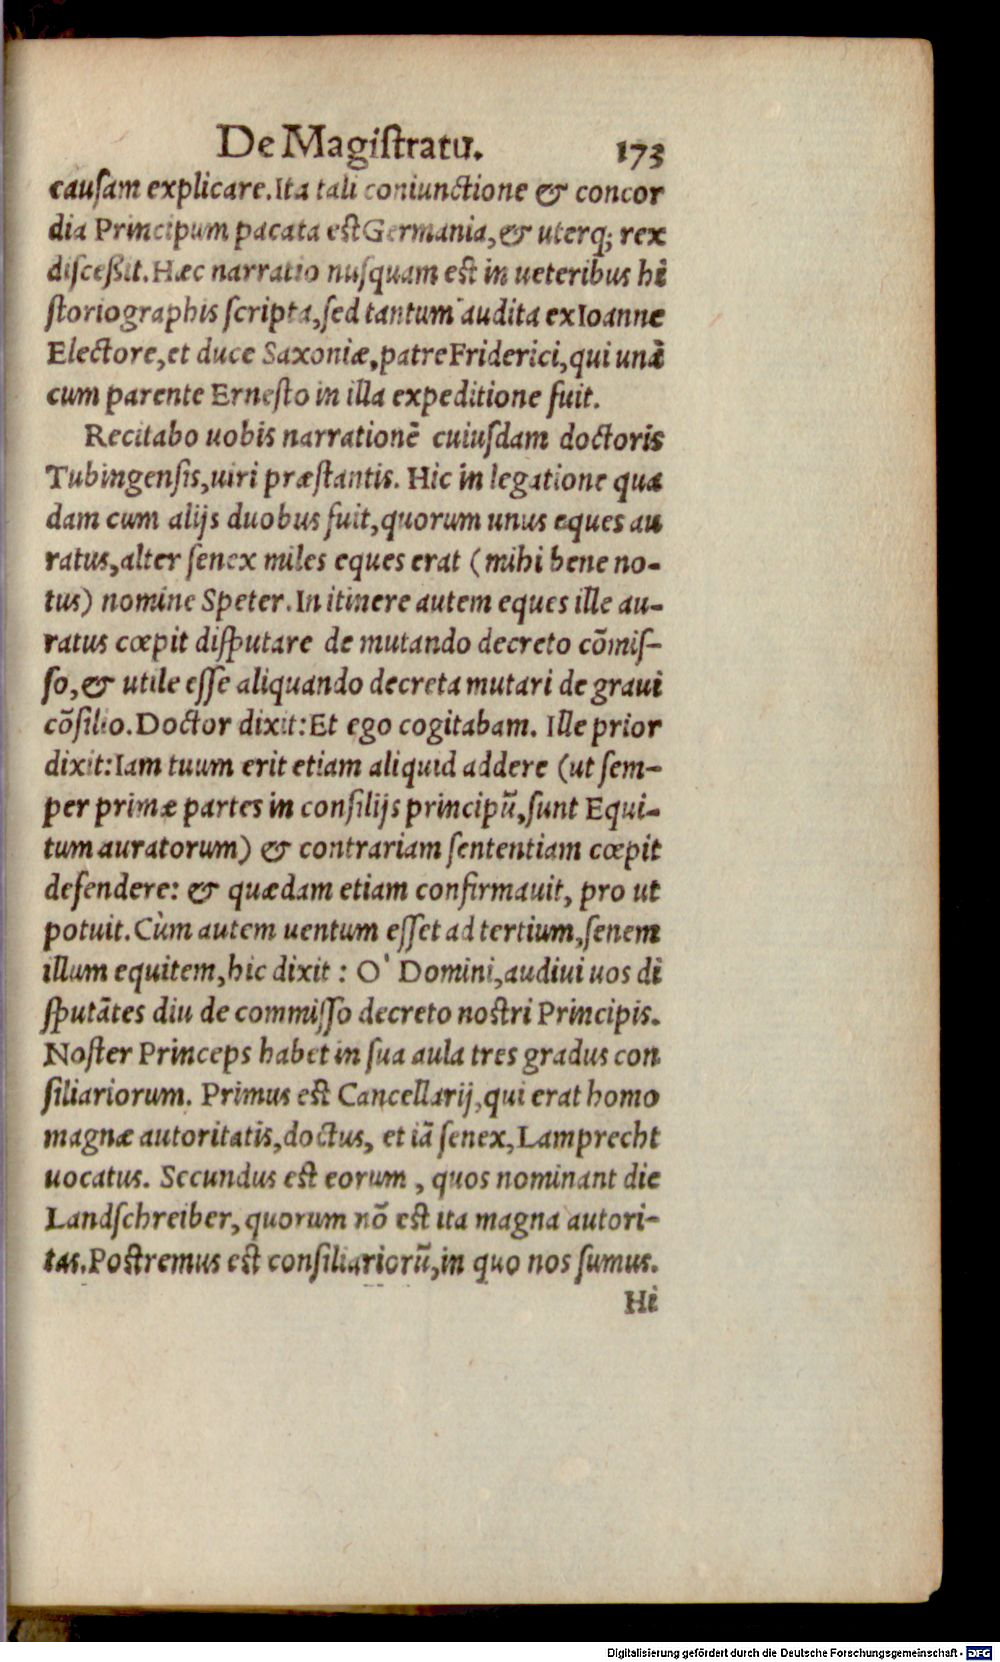 De Magiſtratu. 173
cauſam explicare. Ita tali coniunctione & concor
dia Principum pacata eſt Germania, & uterq; rex
diſceßit. Hæc narratio nuſquam eſt in ueteribus hi
ſtoriographis ſcripta, ſed tantum audita ex Ioanne
Electore, et duce Saxoniæ, patre Friderici, qui unà
cum parente Erneſto in illa expeditione fuit.
Recitabo uobis narrationē cuiuſdam doctoris
Tubingenſis, uiri præſtantis. Hic in legatione qua
dam cum alijs duobus fuit, quorum unus eques au
ratus, alter ſenex miles eques erat (mihi bene no-
tus) nomine Speter. In itinere autem eques ille au-
ratus cœpit diſputare de mutando decreto cōmiſ-
ſo, & utile eſſe aliquando decreta mutari de graui
cōſilio. Doctor dixit: Et ego cogitabam. Ille prior
dixit: Iam tuum erit etiam aliquid addere (ut ſem-
per primæ partes in conſilijs principū, ſunt Equi-
tum auratorum) & contrariam ſententiam cœpit
defendere: & quædam etiam confirmauit, pro ut
potuit. Cùm autem uentum eſſet ad tertium, ſenem
illum equitem, hic dixit: O' Domini, audiui uos di
ſputātes diu de commiſſo decreto noſtri Principis.
Noſter Princeps habet in ſua aula tres gradus con
ſiliariorum. Primus eſt Cancellarij, qui erat homo
magnæ autoritatis, doctus, et iā ſenex, Lamprecht
uocatus. Secundus eſt eorum, quos nominant die
Landſchreiber, quorum nō eſt ita magna autori-
tas. Poſtremus eſt conſiliariorū, in quo nos ſumus.
Hi
Digitalisierung gefördert durch die Deutsche Forschungsgemeinschaft - DFG